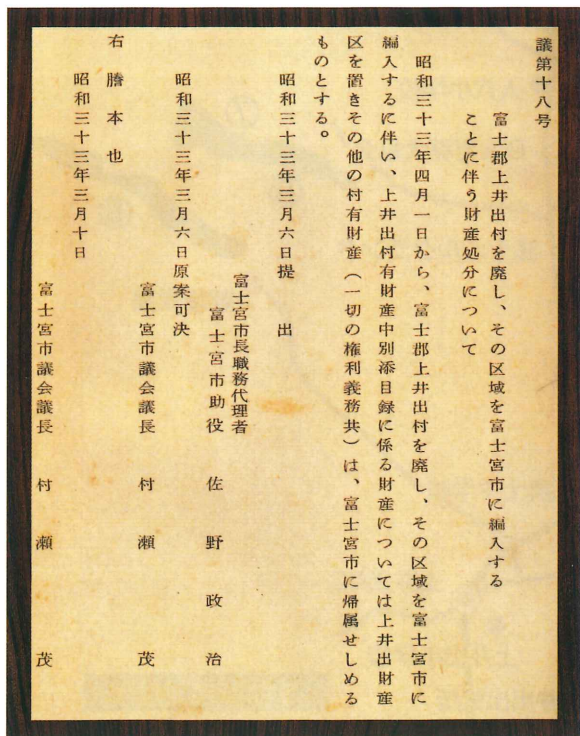 議第十八号
富士郡上井出村を廃し、その区域を富士宮市に編入する
ことに伴う財産処分について
昭和三十三年四月一日から、富士郡上井出村を廃し、その区域を富士宮市に
編入するに伴い、上井出村有財産中別添目録に係る財産については上井出財産
区を置きその他の村有財産（一切の権利義務共）は、富士宮市に帰属せしめる
ものとする。
昭和三十三年三月六日提　出
富士宮市長職務代理者
富士宮市助役　佐　野　政　治
昭和三十三年三月六日原案可決
富士宮市議会議長　村　瀬　茂
右　謄　本　也
昭和三十三年三月十日
富士宮市議会議長　村　瀬　茂